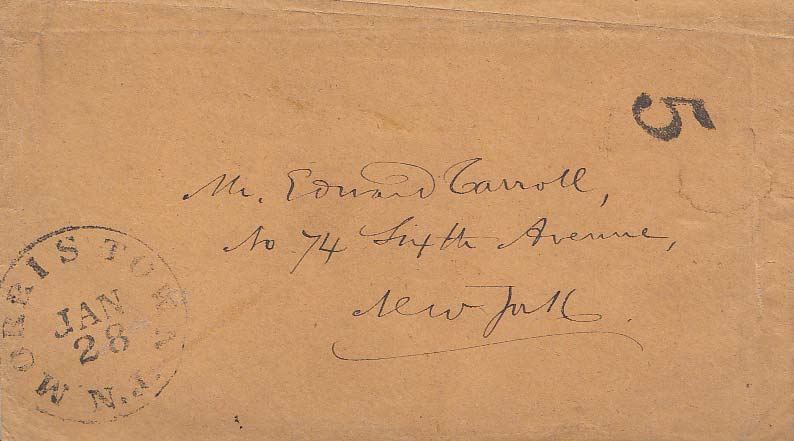 5
Mr. Edward Carroll,
No 74 Sixth Avenue,
New York.
MORRISTOWN
JAN
28
N.J.